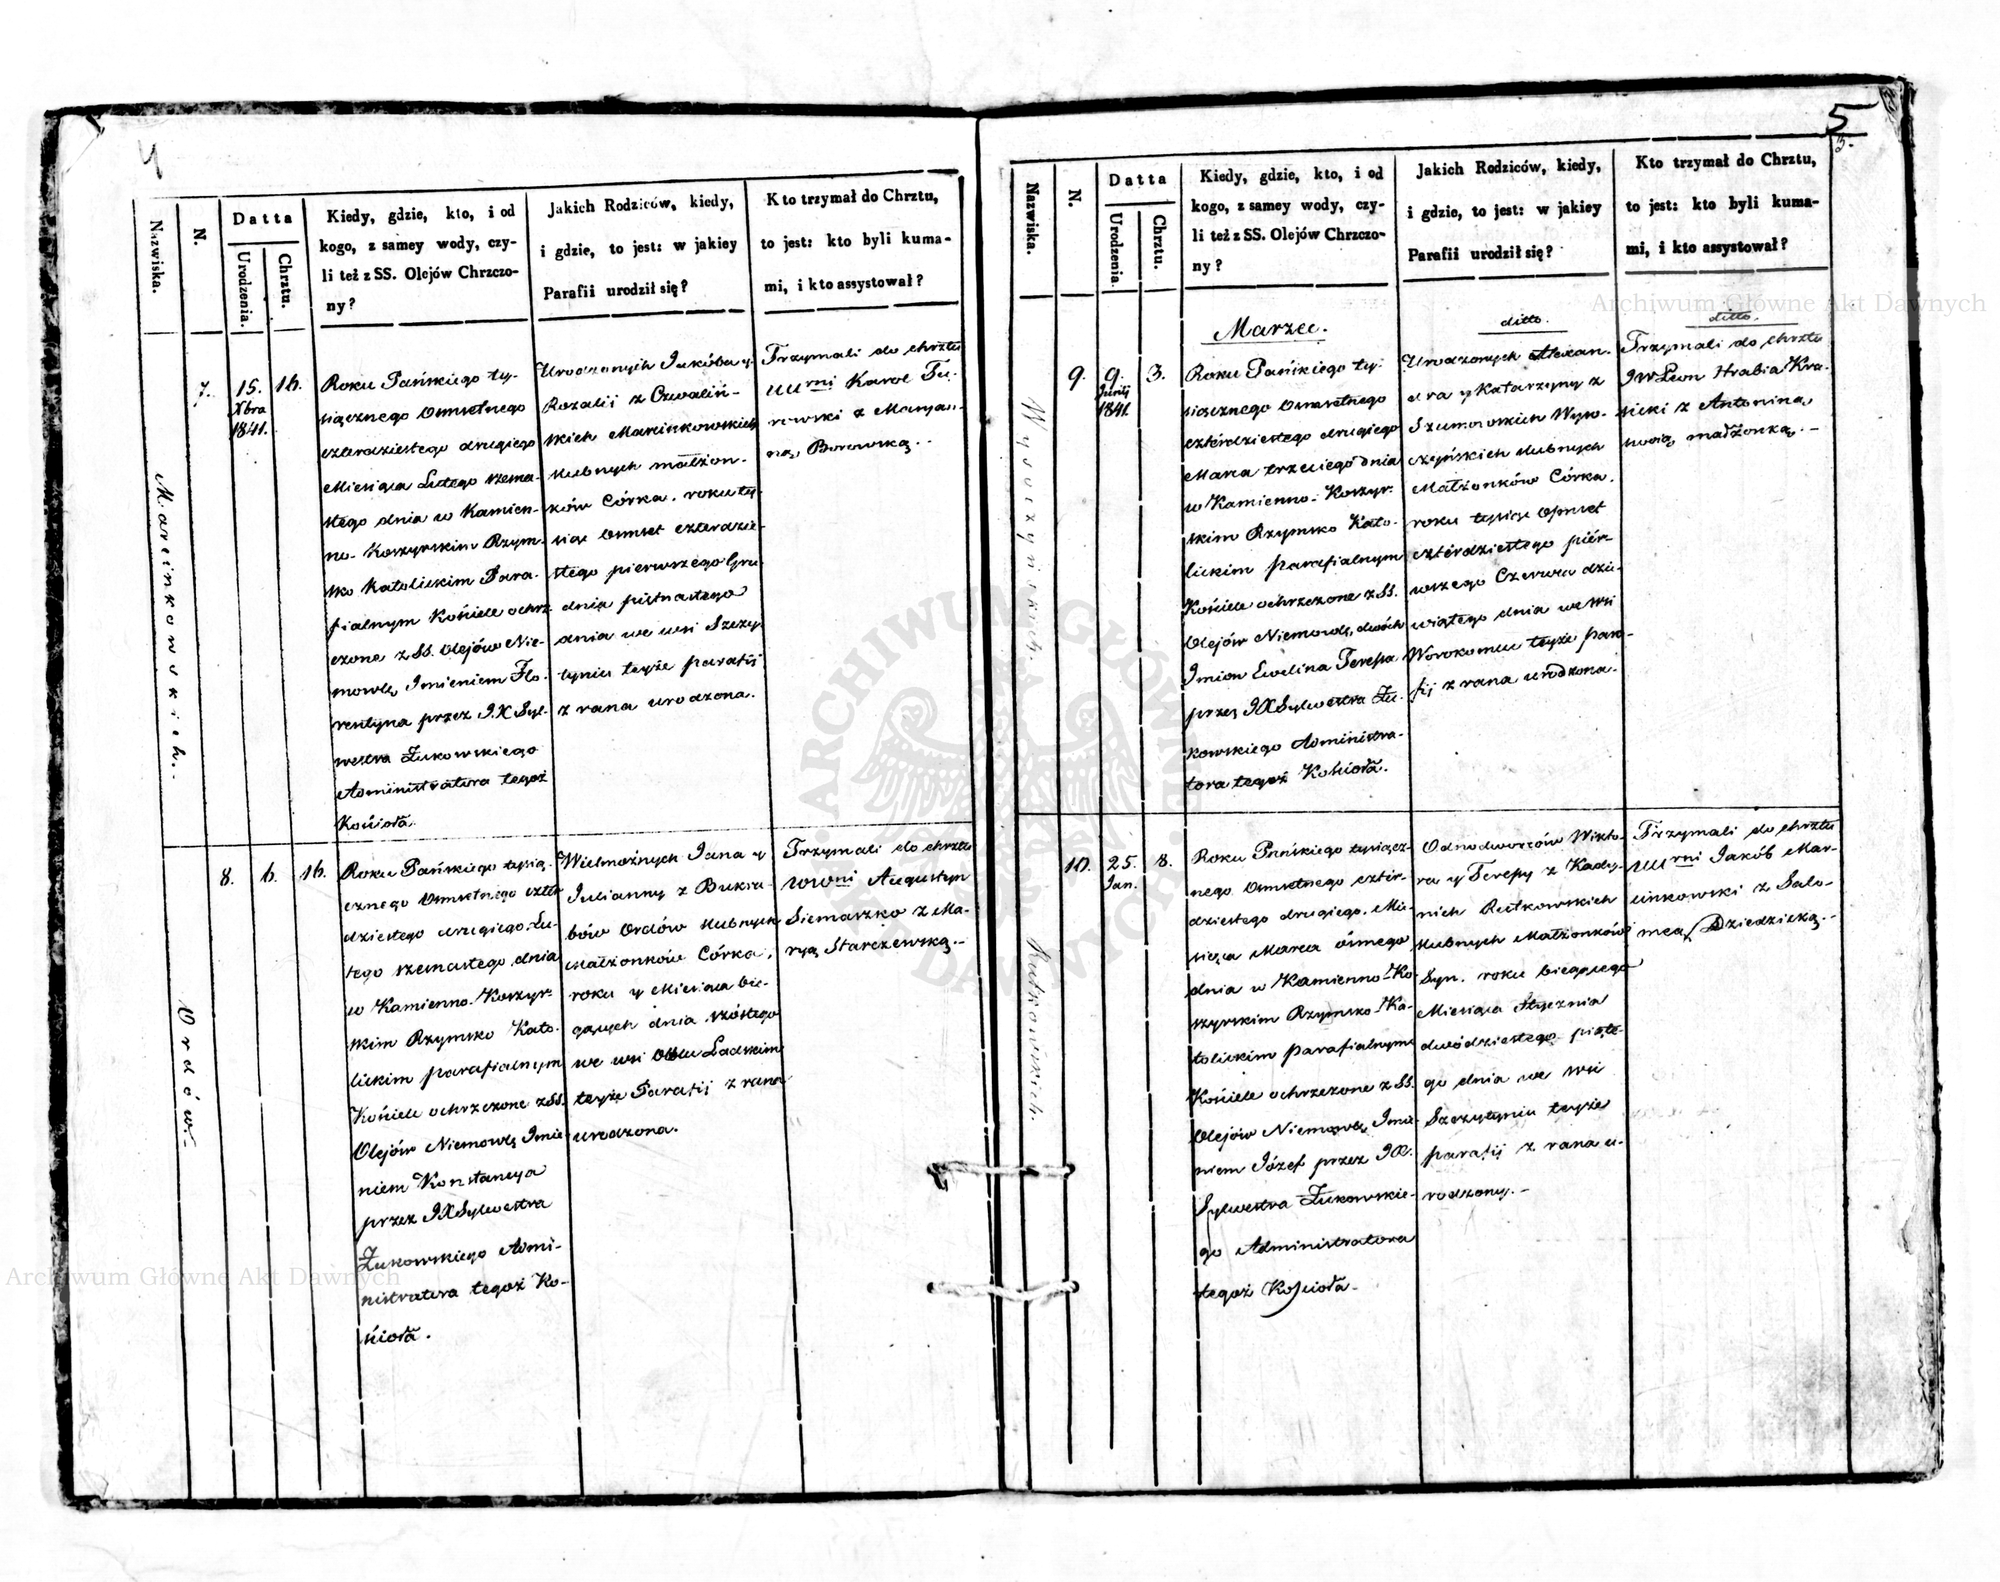 4
Nazwiska.
N.
Datta
Urodzenia.
Chrztu.
Kiedy, gdzie, kto, i od
kogo, z samey wody, czy-
li też z SS. Olejów Chrzczo-
ny?
Jakich Rodziców, kiedy,
i gdzie, to jest: w jakiey
Parafii urodził się?
Kto trzymał do Chrztu,
to jest: kto byli kuma-
mi, i kto assystował?
Marcinkowskich.
7.
15.
Xbra
1841.
16.
Roku Pańskiego ty-
siącznego Osmsetnego
czterdziestego drugiego
Miesiąca Lutego szesna-
stego dnia w Kamien-
no-Koszyrskim Rzym-
sko Katolickim Para-
fialnym Kościele ochrz
czone z SS. Olejów Nie-
mowlę Imieniem Flo-
rentyna przez J.X Syl-
westra Żukowskiego
Administratora tegoż
Kościoła.
Urodzonych Jakóba y
Rozalii z Czwaliń-
skich Marcinkowskich
ślubnych małżon-
ków Córka. roku ty-
siąc Osmset czterdzie-
stego pierwszego Gru
dnia piętnastego
dnia we wsi Szczy
tyniu teyże parafij
z rana urodzona.
Trzymali do chrztu
UU rni Karol Tu-
rowski z Maryan-
ną Borowską.
Ordów.
8.
6.
16.
Roku Pańskiego tysią-
cznego Osmsetnego czter
dziestego drugiego Lu-
tego szesnastego dnia
w Kamienno-Koszyr-
skim Rzymsko Kato-
lickim parafialnym
Kościele ochrzczone z SS.
Olejów Niemowlę Imie-
niem Konstancya
przez JX Sylwestra
Żukowskiego Admi-
nistratora tegoż Ko-
ścioła.
Wielmożnych Jana y
Julianny z Bukra-
bów Ordów ślubnych
Małżonków Córka,
roku y Miesiąca bie-
gących dnia szóstego
we wsi Ladskim
teyże Parafij z rana
urodzona.
Trzymali do chrztu
WW ni Augustyn
Siemaszko z Ma-
ryą Starczewską.
5
Nazwiska.
N.
Datta
Urodzenia.
Chrztu.
Kiedy, gdzie, kto, i od
kogo, z samey wody, czy-
li też z SS. Olejów Chrzczo-
ny?
Jakich Rodziców, kiedy,
i gdzie, to jest: w jakiey
Parafii urodził się?
Kto trzymał do Chrztu,
to jest: kto byli kuma-
mi, i kto assystował?
Wysoczyńskich.
9.
9.
Junij
1841.
3.
Marzec.
Roku Pańskiego ty-
siącznego Osmsetnego
cztérdziestego drugiego
Marca trzeciego dnia
w Kamienno-Koszyr-
skim Rzymsko Kato-
lickim parafialnym
Kościele ochrzczone z SS.
Olejów Niemowlę, dwóch
Imion Ewelina Teressa
przez JX Sylwestra Żu-
kowskiego Administra-
tora tegoż Kościoła.
ditto.
Urodzonych Alexan-
dra y Katarzyny z
Szumowskich Wyso-
czyńskich ślubnych
Małżonków Córka.
roku tysiąc Osmset
cztérdziestego piér-
wszego Czerwca dzie-
wiątego dnia we wsi
Worokomlu teyże para-
fij z rana urodzona.
ditto.
Trzymali do chrztu
JW Leon Hrabia Kra-
sicki z Antoniną
swoią małżonką.
Rutkowskich.
10.
25.
Jan.
8.
Roku Pańskiego tysiącz-
nego Osmsetnego cztér-
dziestego drugiego. Mie-
siąca Marca ósmego
dnia w Kamienno-Ko-
szyrskim Rzymsko-Ka-
tolickim parafialnym
Kościele ochrzczone z SS.
Olejów Niemowlę Imie-
niem Józef przez JX.
Sylwestra Żukowskie-
go Administratora
tegoż Kościoła.
Odnodworców Wikto-
ra y Teressy z Kady-
nich Rutkowskich
ślubnych Małżonków
Syn. roku bieżącego
Miesiąca Stycznia
dwódziestego piąte-
go dnia we wsi
Szczytyniu teyże
parafij z rana u-
rodzony.
Trzymali do chrztu
UU rni Jakób Mar-
cinkowski z Salo-
meą Dziedzicką.
ARCHIWUM GŁÓWNE AKT DAWNYCH
Archiwum Główne Akt Dawnych
Archiwum Główne Akt Dawnych